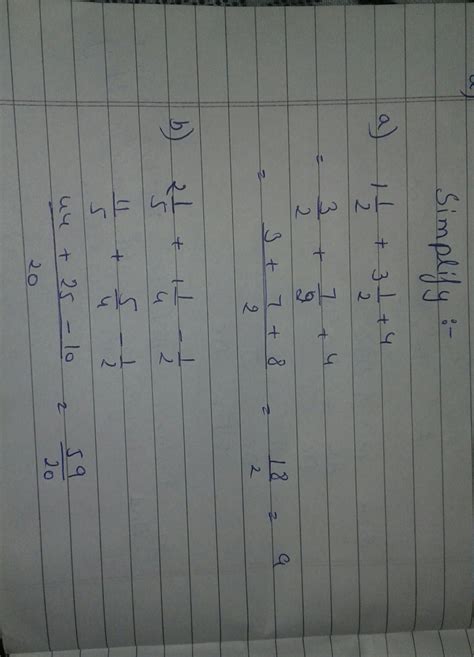 Simplify :-
a) 1 1/2 + 3 1/2 + 4
= 3/2 + 7/2 + 4
= 3 + 7 + 8 / 2 = 18/2 = 9
b) 2 1/5 + 1 1/4 - 1/2
11/5 + 5/4 - 1/2
44 + 25 - 10 / 20 = 59/20